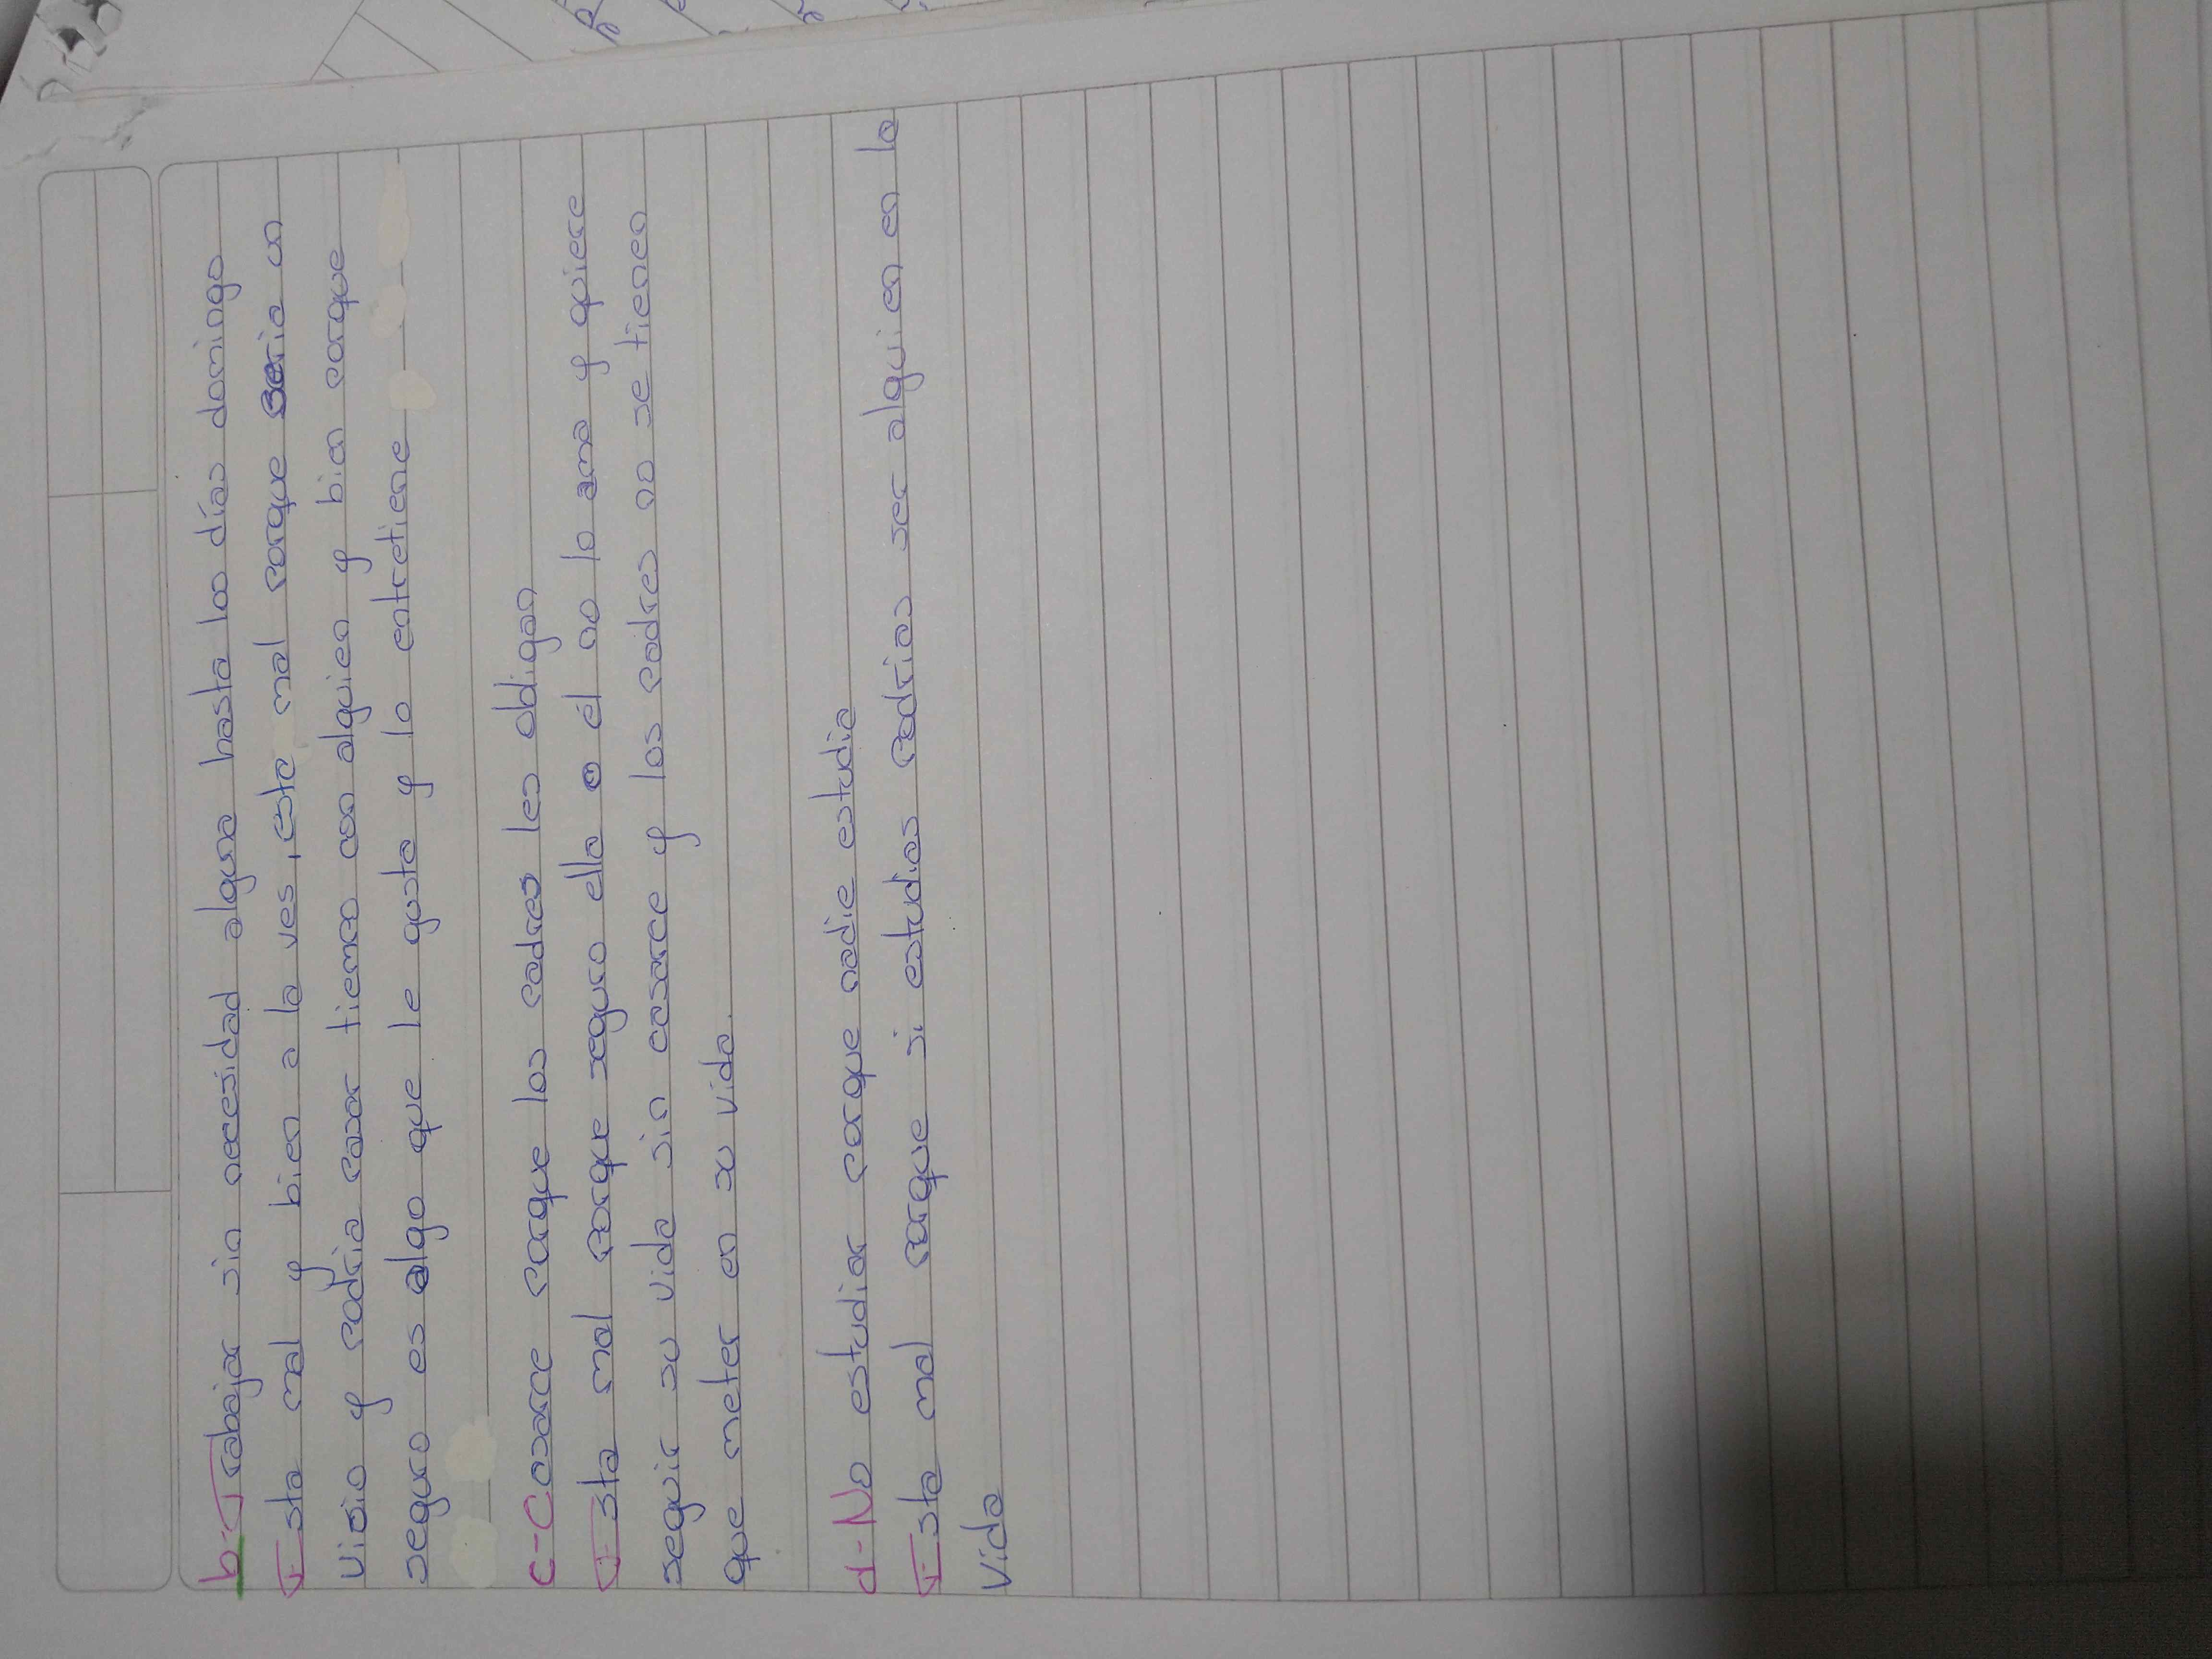 b-Trabajar sin necesidad alguna hasta los días domingo
Esta mal y bien a la ves, esta mal porque seria un
Visio y podria pasar tiempo con alguien y bien porque
seguro es algo que le gusta y lo entretiene
c-Casarce porque los padres les obligan
Esta mal porque seguro ella o él no lo ama y quiere
seguir su vida sin casarce y los padres no se tienen
que meter en su vida.
d-No estudiar porque nadie estudia
Esta mal porque si estudias podrias ser alguien en la
Vida